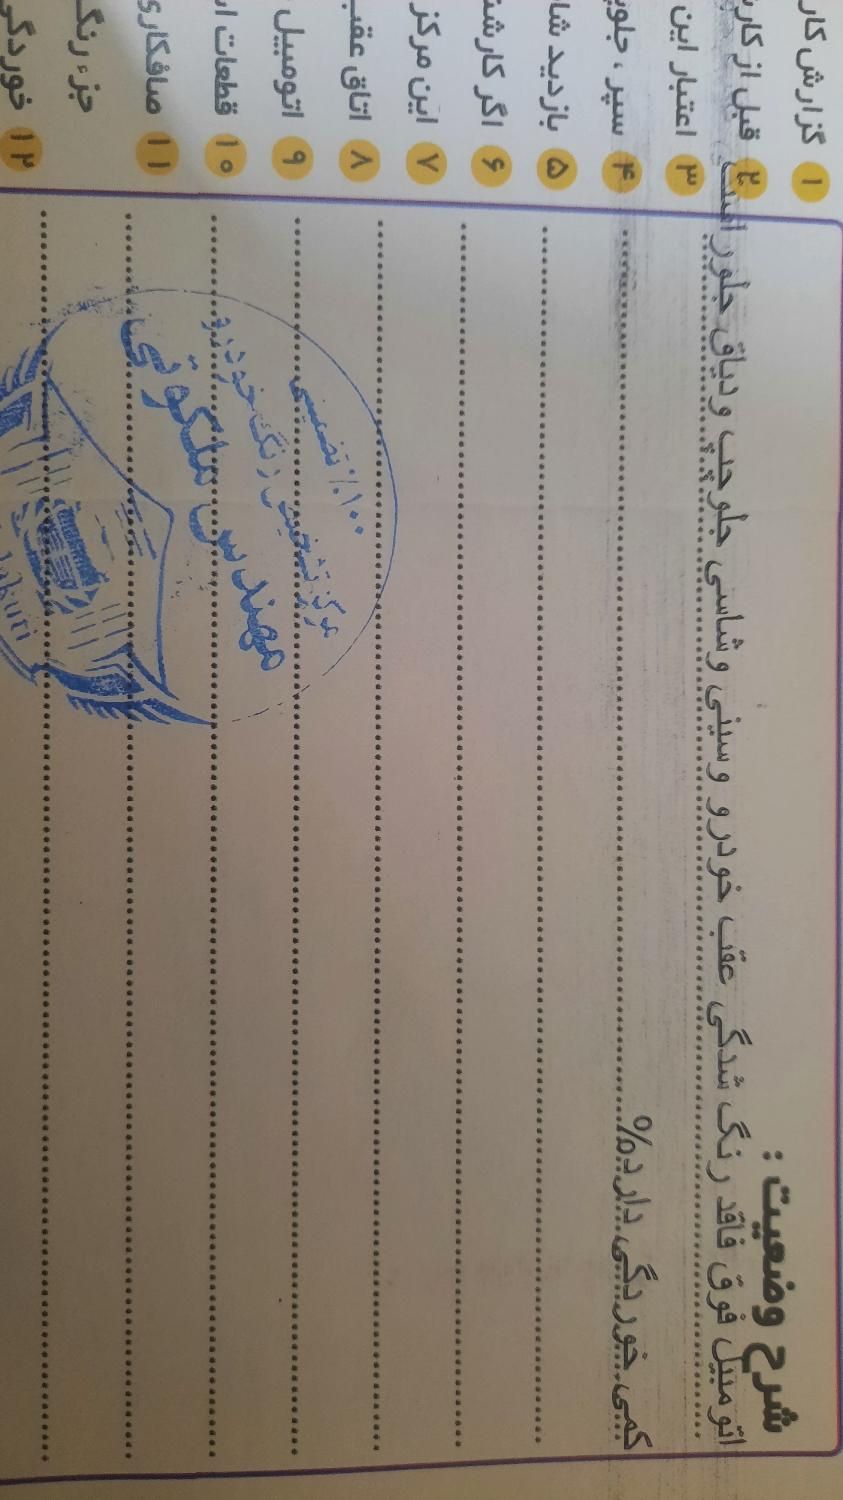 شرح وضعیت :
اتومبیل فوق فاقد رنگ شدگی عقب خودرو وسینی وشاسی جلو چپ ودیاق جلور است
کمی خوردگی دارد%
۱۰۰٪ تضمینی
مرکز تشخیص رنگ خودرو
مهندس ملکوتی
۱ گزارش کار
۲ قبل از کار
۳ اعتبار این
۴ سپر ، جلو
۵ بازدید
۶ اگر
۷ این مرکز
۸ اتاق عقب
۹ اتومبیل
۱۰ قطعات
۱۱ صافکاری
جزء رنگ
۱۲ خوردگی